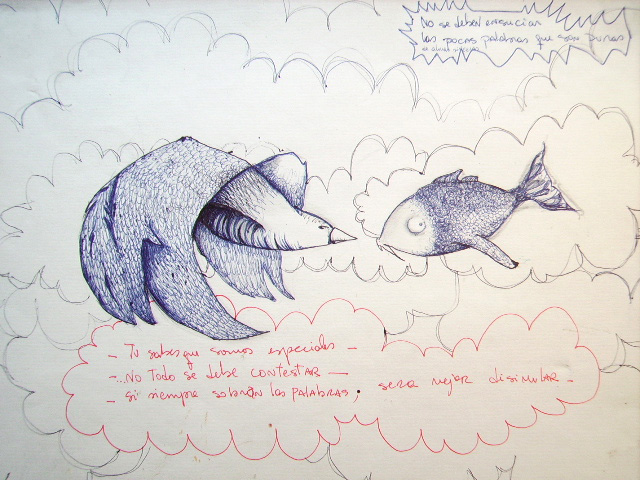 No se deben ensuciar
las pocas palabras que son puras
- Tu sabes que somos especiales -
-...NO TODO se debe CONTESTAR -
- si siempre sobran las palabras, sera mejor disimular -